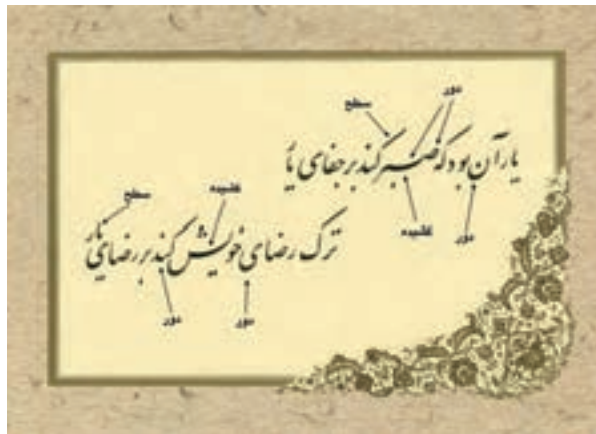 دور
سطح
یار آن بود که صبر کند بر جفای یار
کشیده
دور
سطح
کشیده
ترک رضای خویش کند بر رضای یار
دور
دور